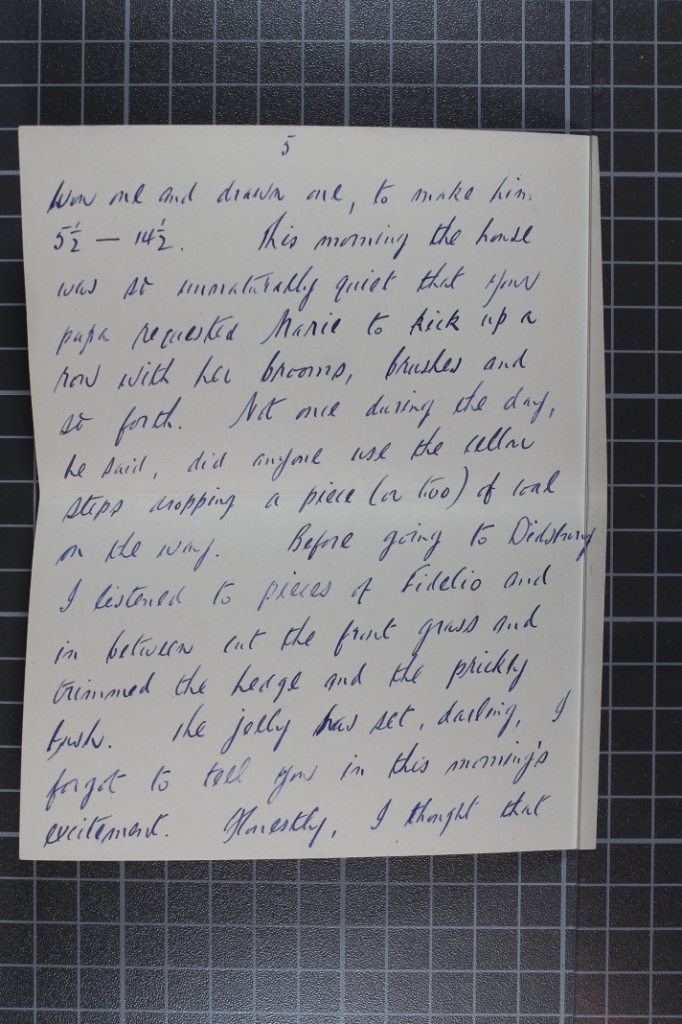 5
won one and drawn one, to make him
5½ — 14½. This morning the house
was so unnaturally quiet that your
papa requested Marie to kick up a
row with her brooms, brushes and
so forth. Not once during the day,
he said, did anyone use the cellar
steps dropping a piece (or two) of coal
on the way. Before going to Didsbury
I listened to pieces of Fidelio and
in between cut the front grass and
trimmed the hedge and the prickly
bush. The jelly has set, darling, I
forgot to tell you in this morning's
excitement. Honestly, I thought that